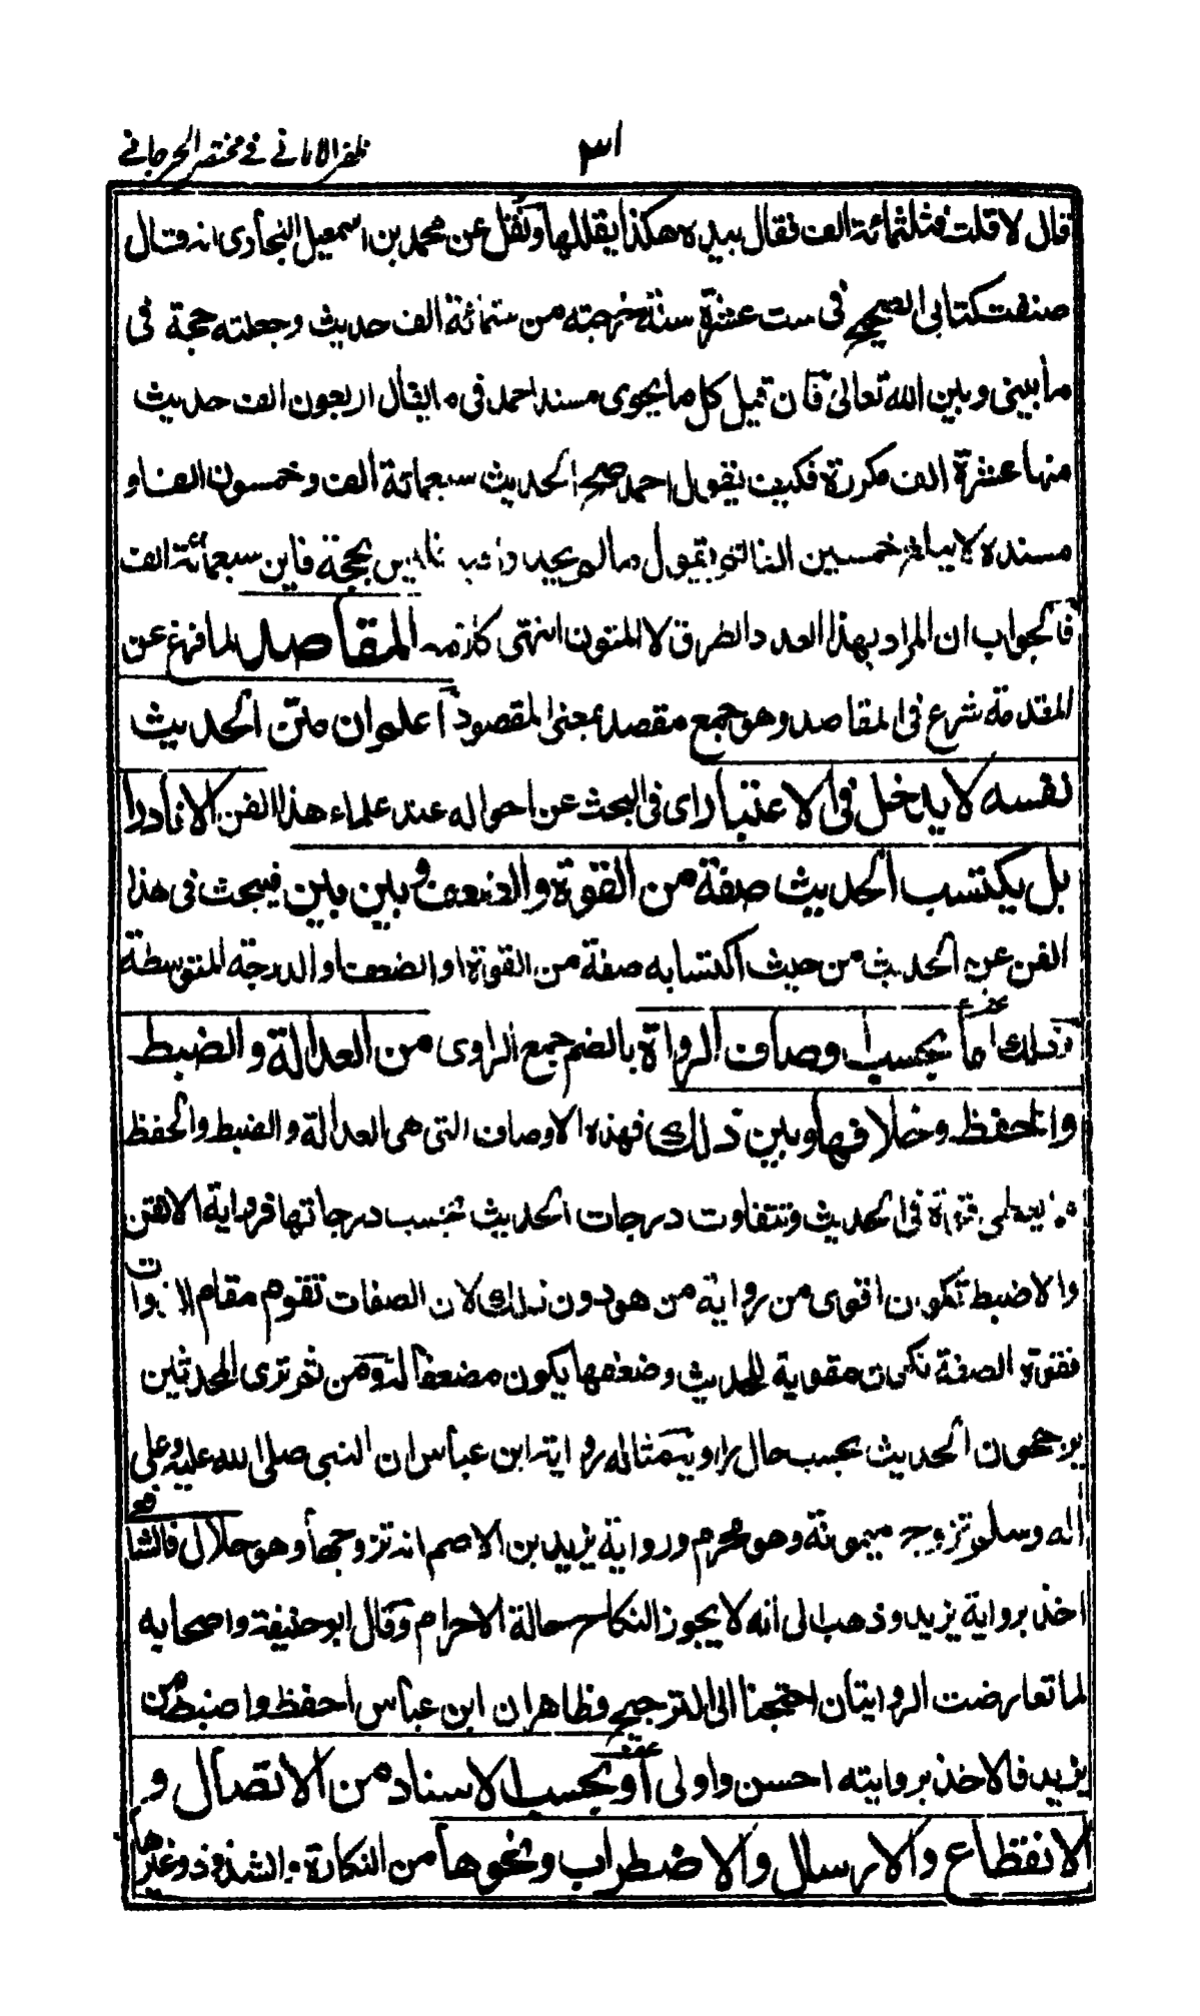 ظفر الامانے فے مختصر الجرجانے
٣١
قال لا قلت فثلثمائة الف فقال بيده هكذا يقللها ونقل عن محمد بن اسمعيل البخارى انه قال
صنفت كتابى الصحيح فى ست عشرة سنة خرجته من ستمائة الف حديث وجعلته حجة فى
ما بينى وبين الله تعالى فان قيل كل ما يحوى مسند احمد فى ما يقال اربعون الف حديث
منها عشرة الف مكررة فكيف يقول احمد صح الحديث سبعمائة الف وخمسون الفا و
مسنده لا يبلغ خمسين الفا لم يقول ما لم يجد فليس بحجة فاين سبعمائة الف
فالجواب ان المراد بهذا العدد الطرق لا المتون انتهى كلامه المقاصد لما فرغ عن
المقدمة شرع فى المقاصد وهو جمع مقصد بمعنى المقصود اعلم ان متن الحديث
نفسه لا يدخل فى الاعتبار اى فى البحث عن احواله عند علماء هذا الفن الا نادرا
بل يكتسب الحديث صفة من القوة والضعف وبين بين فيبحث فى هذا
الفن عن الحديث من حيث اكتسابه صفة من القوة او الضعف او الدرجة المتوسطة
وذلك اما بحسب اوصاف الرواة بالضم جمع الراوى من العدالة والضبط
والحفظ وخلافها وبين ذلك فهذه الاوصاف التى هى العدالة والضبط والحفظ
يعطى قوة فى الحديث وتتفاوت درجات الحديث بحسب درجاتها فرواية الاتقن
والاضبط تكون اقوى من رواية من هو دون ذلك لان الصفات تقوم مقام الذوات
فقوة الصفة تكون مقوية للحديث وضعفها يكون مضعفا له ومن ثم ترى المحدثين
يرجحون الحديث بحسب حال راويه مثاله رواية ابن عباس ان النبى صلى الله عليه وعلى
اله وسلم تزوج ميمونة وهو محرم ورواية يزيد بن الاصم انه تزوجها وهو حلال فالشافعى
اخذ برواية يزيد وذهب الى انه لا يجوز النكاح حالة الاحرام وقال ابو حنيفة واصحابه
لما تعارضت الروايتان احتجنا الى الترجيح فظاهر ان ابن عباس احفظ واضبط من
يزيد فالاخذ بروايته احسن واولى او بحسب الاسناد من الاتصال و
الانقطاع والارسال والاضطراب ونحوها من النكارة والشذوذ وغيرها